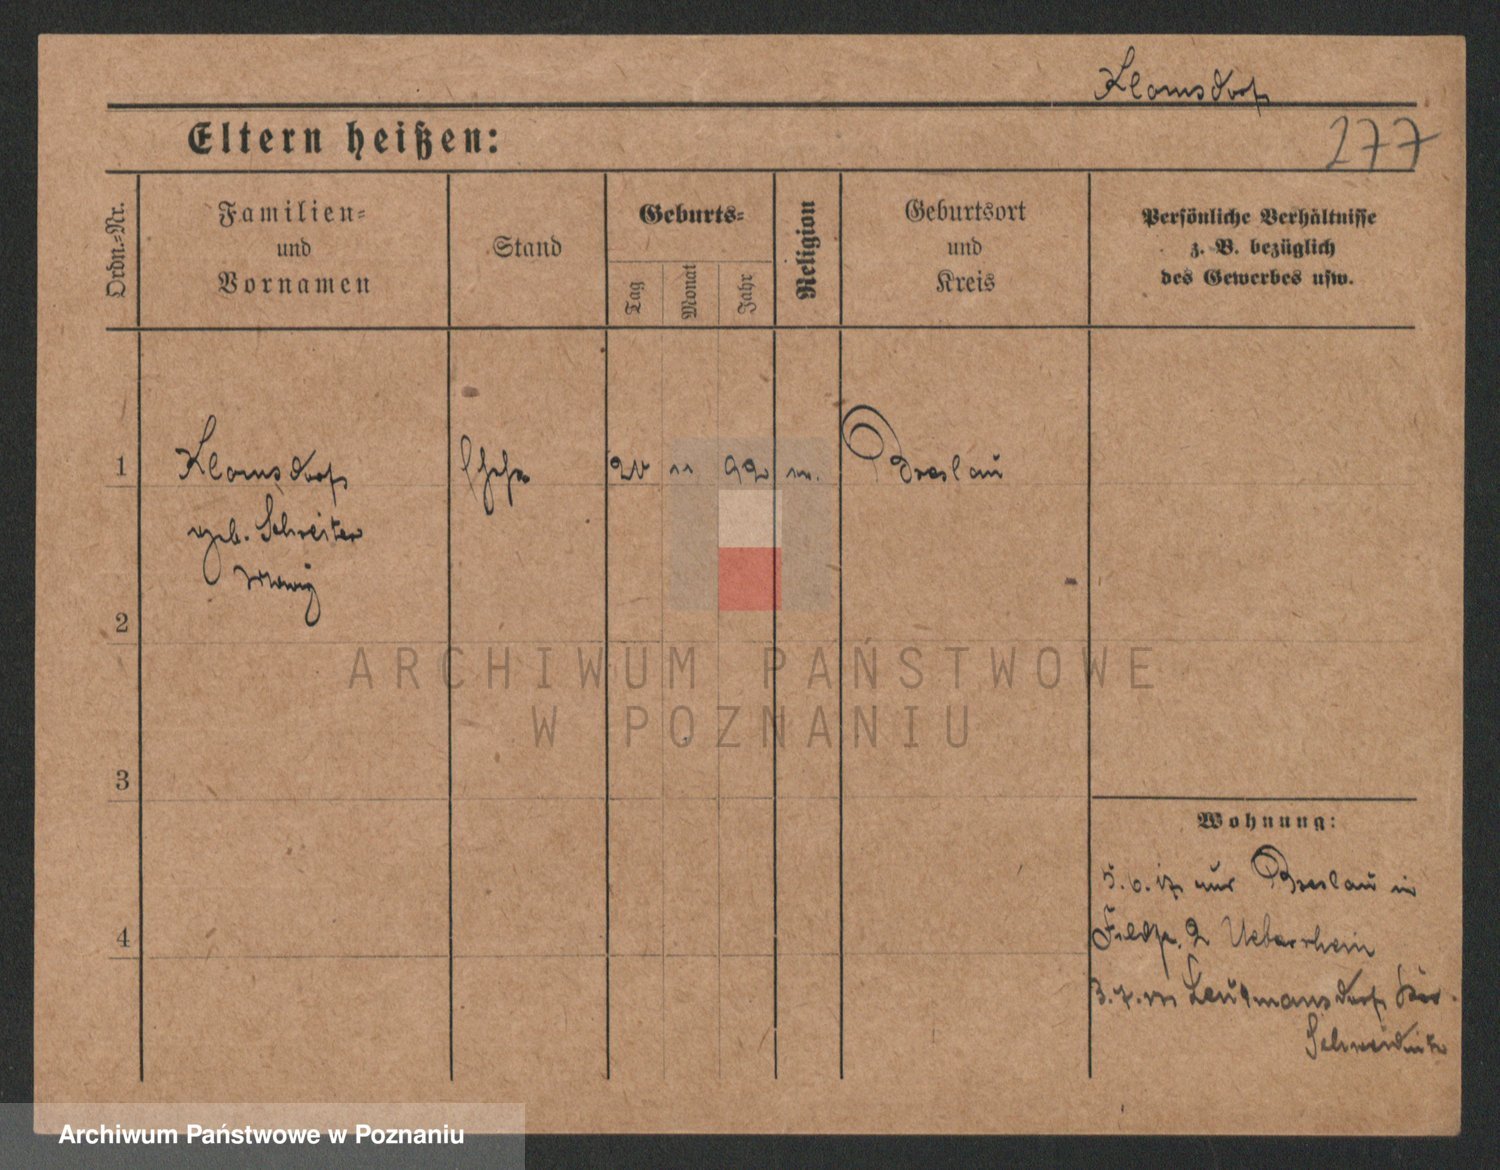 Klomsdorf
277
Eltern heißen:
Ordn.-Nr.
Familien-
und
Vornamen
Stand
Geburts-
Tag
Monat
Jahr
Religion
Geburtsort
und
Kreis
Persönliche Verhältnisse
z. B. bezüglich
des Gewerbes usw.
1
Klomsdorf
geb. Schreiter
20 11 92
Breslau
2
ARCHIWUM PAŃSTWOWE
W POZNANIU
3
Wohnung:
aus Breslau in
Feldp. 2 Ueberrhein
4
Leutmannsdorf Kr.
Schweidnitz
Archiwum Państwowe w Poznaniu